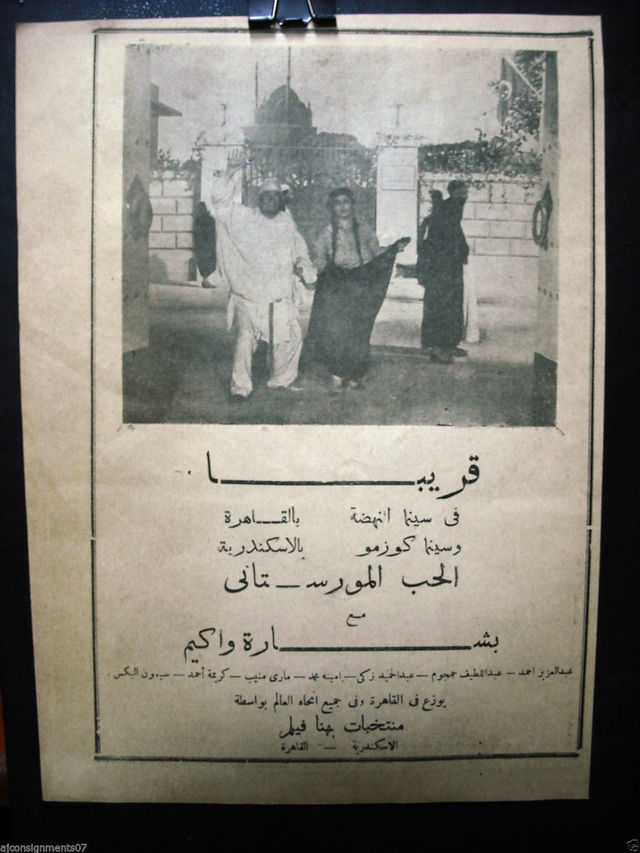 قريبا
فى سينما النهضة بالقاهرة
وسينما كوزمو بالاسكندرية
الحب المورستانى
مع
بشارة واكيم
عبدالعزيز احمد – عبداللطيف جمجوم – عبدالحميد زكى – امينه محمد – مارى منيب – كريمة أحمد – سيمون البكس
يوزع فى القاهرة وفى جميع انحاء العالم بواسطة
منتخبات بهنا فيلم
الاسكندرية – القاهرة
ajconsignments07